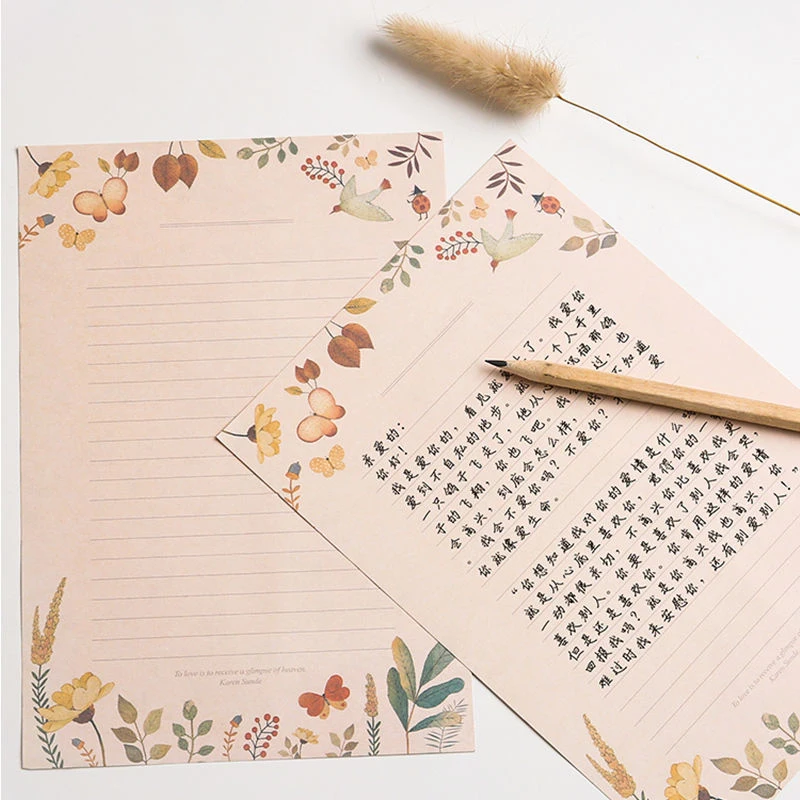 To love is to receive a glimpse of heaven.
Karen Sunde
亲爱的:
你好!
我是爱你的,看见就上了。我爱你
爱到不自私的地步。个人手里
一只鸽子飞走了,他从心祝福那鸽
子的飞翔,你也飞吧。我过,也
会高兴,到底会怎么样,我不知道
。我会不爱你吗?不爱你?爱
你就像爱生命。
“你想知道我对你的爱情是什么吗
就是从心底里喜欢你,觉得你的一
一动都很亲切,不高兴你比喜欢我更
喜欢别人。你要是喜欢了别人我会哭,
但是还是喜欢你。你肯用这样的爱情
回报我吗?就是你高兴我也高兴,你
难过时我来安慰你,还有别爱别人!”
To love is to receive a glimpse of
Karen Sunde